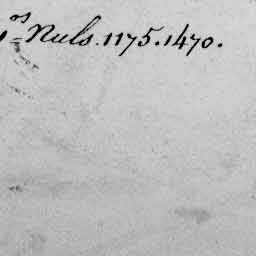 os Nuls. 1175. 1470.